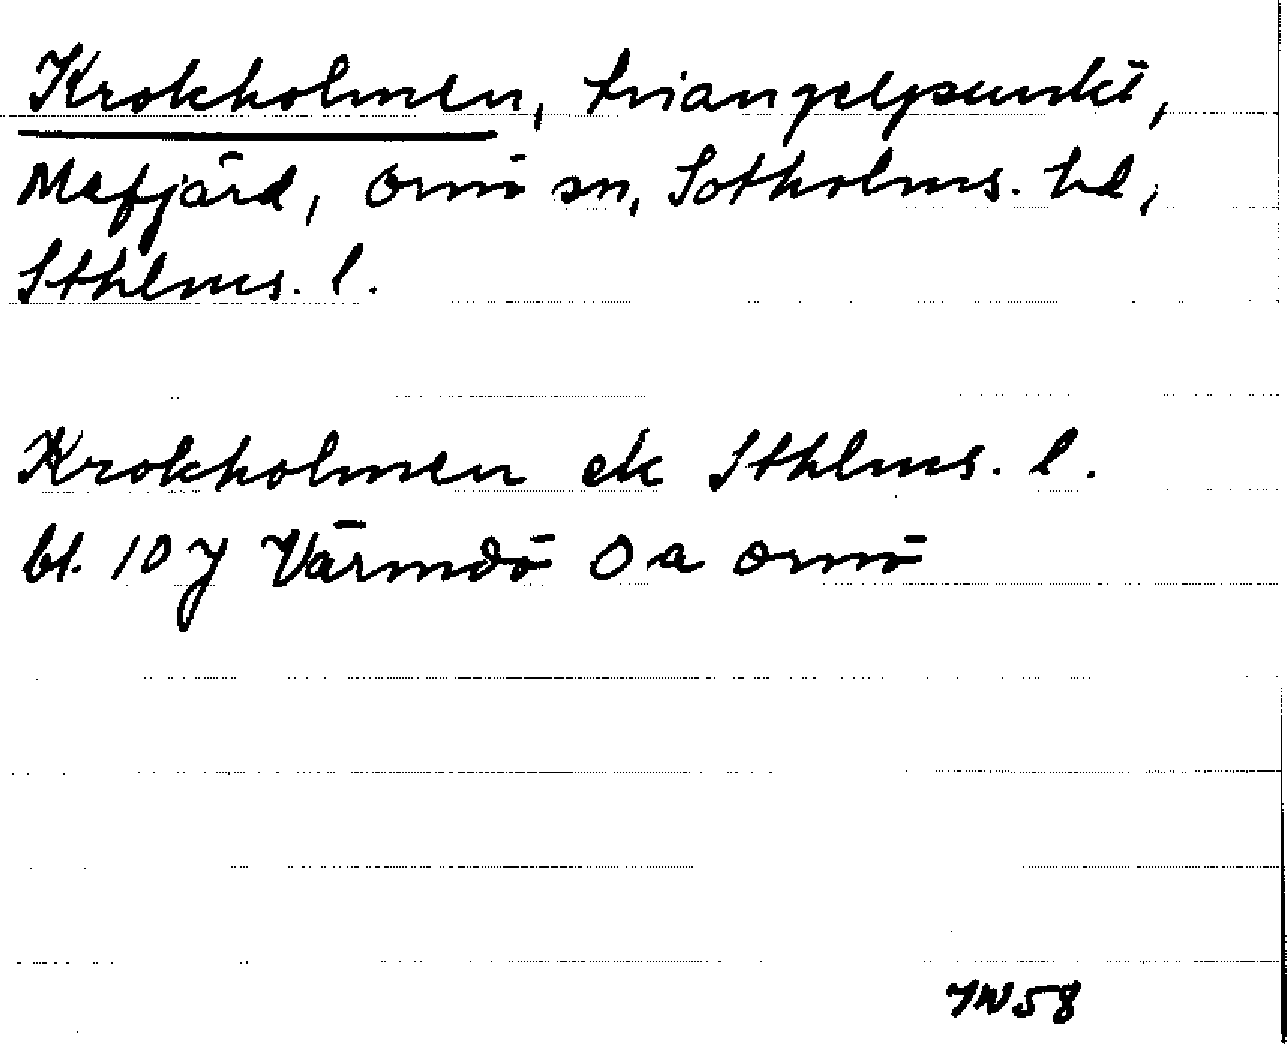 Krokholmen, triangelpunkt,
Mefjärd, Ornö sn, Sotholms. hd,
Sthlms. l.
Krokholmen ek Sthlms. l.
bl. 10 J Värmdö O a Ornö